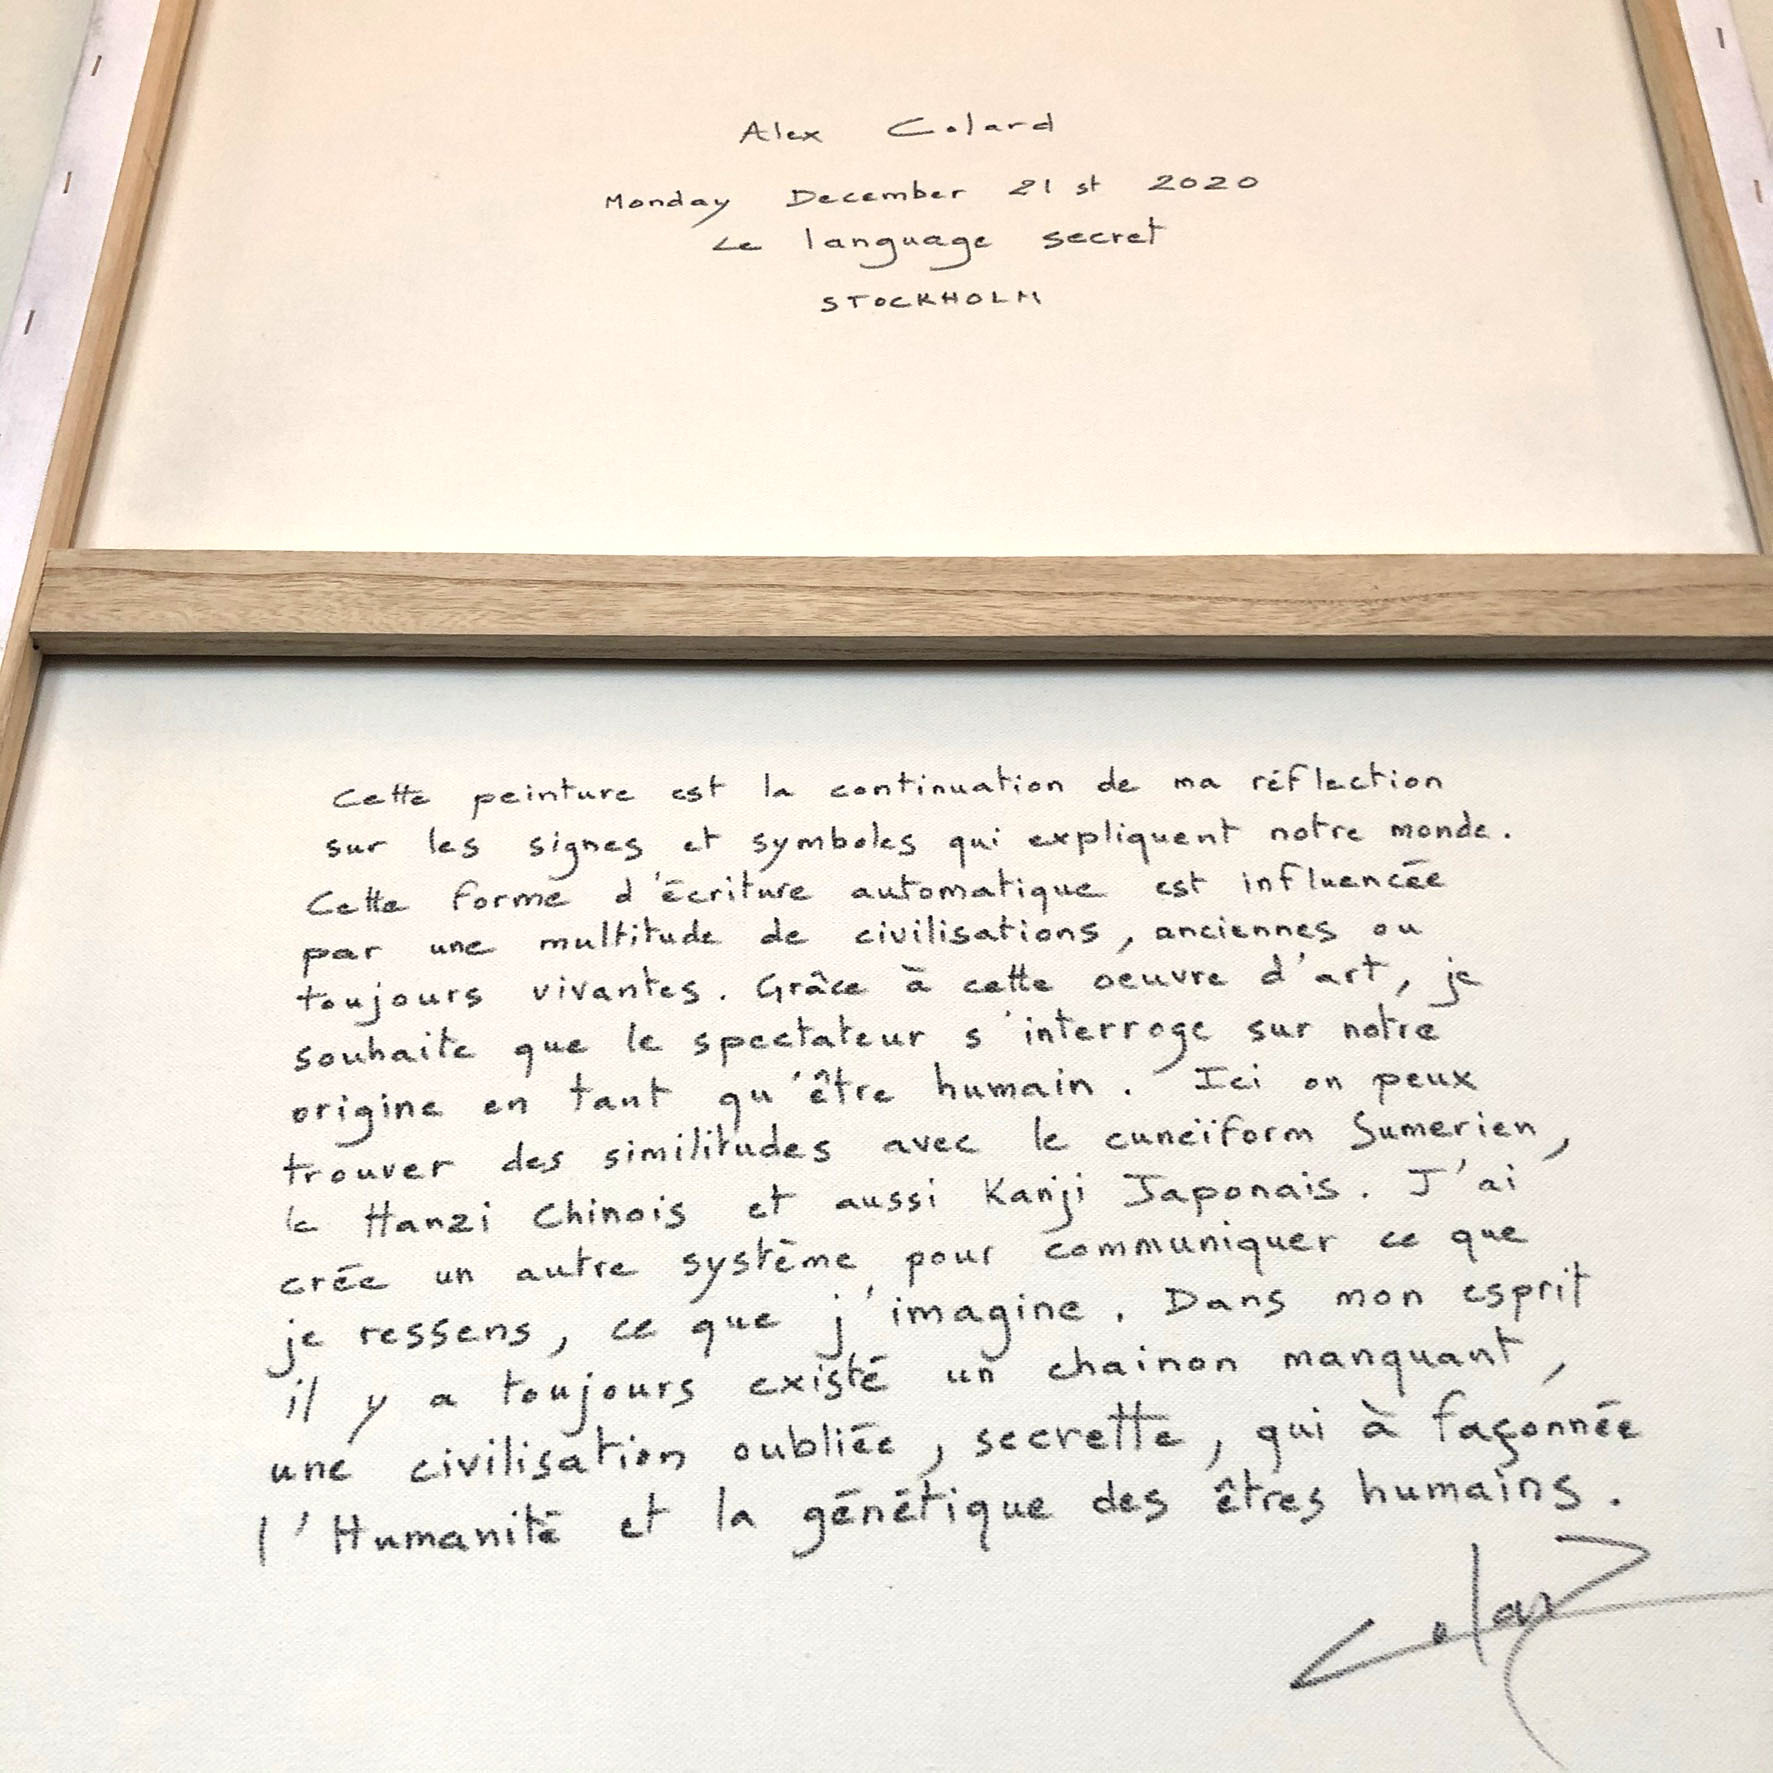 Alex Colard
Monday December 21 st 2020
Le language secret
STOCKHOLM
Cette peinture est la continuation de ma réflection
sur les signes et symboles qui expliquent notre monde.
Cette forme d'écriture automatique est influencée
par une multitude de civilisations, anciennes ou
toujours vivantes. Grâce à cette oeuvre d'art, je
souhaite que le spectateur s'interroge sur notre
origine en tant qu'être humain. Ici on peux
trouver des similitudes avec le cuneïform Sumerien,
le Hanzi Chinois et aussi Kanji Japonais. J'ai
crée un autre système pour communiquer ce que
je ressens, ce que j'imagine. Dans mon esprit
il y a toujours existé un chainon manquant,
une civilisation oubliée, secrette, qui à façonnée
l'Humanité et la génétique des êtres humains.
Colard